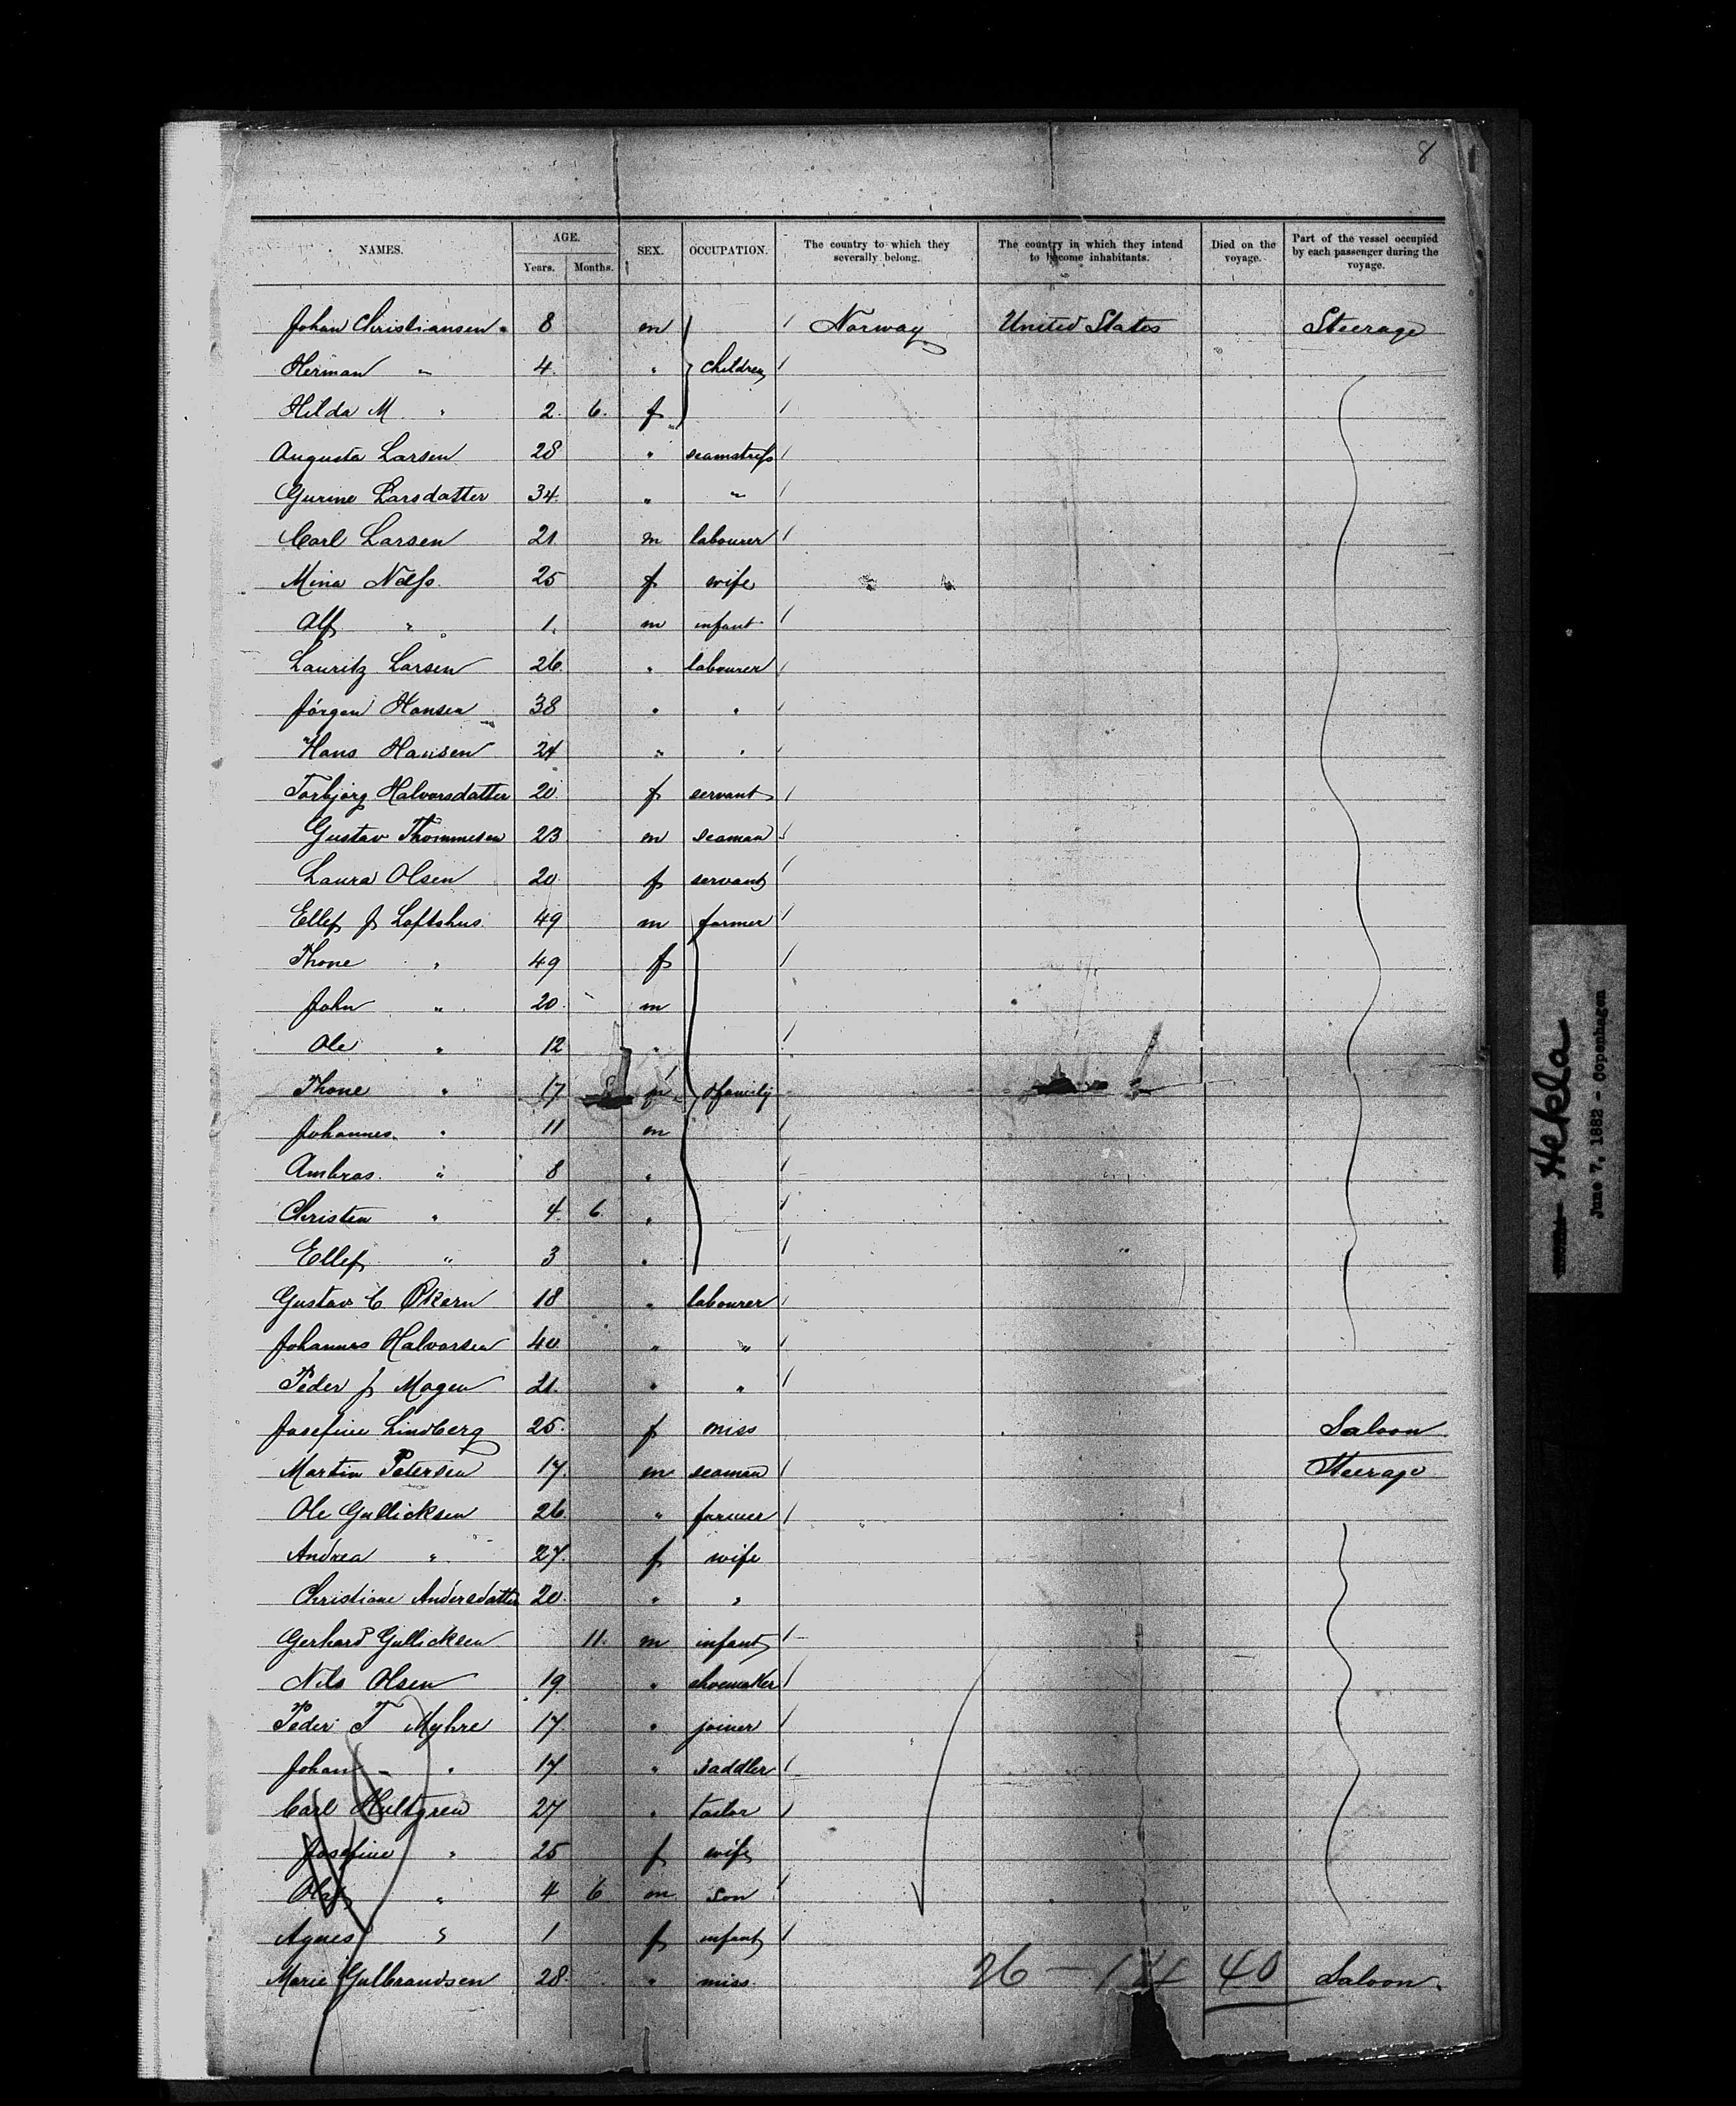 8
NAMES. AGE. SEX. OCCUPATION. The country to which they severally belong. The country in which they intend to become inhabitants. Died on the voyage. Part of the vessel occupied by each passenger during the voyage.
Years. Months.
Johan Christiansen 8 m Norway United States Steerage
Herman " 4 " children
Hilda M " 2 6 f
Augusta Larsen 28 " seamstress
Gurine Larsdatter 34 " "
Carl Larsen 21 m labourer
Mina Næss 25 f wife
Alf " 1 m infant
Lauritz Larsen 26 " labourer
Jörgen Hansen 38 " "
Hans Hansen 24 " "
Torbjorg Halvorsdatter 20 f servant
Gustav Thommesen 23 m seaman
Laura Olsen 20 f servant
Ellef J Loftshus 49 m farmer
Thone " 49 f
John " 20 m
Ole " 12 "
Thone " 17 family
Johannes " 11 m
Ambros " 8 "
Christen " 4 6 "
Ellef " 3 "
Gustav C Økern 18 " labourer
Johannes Halvorsen 40 " "
Peder J Mogen 21 " "
Josefine Lindberg 25 f miss Saloon
Martin Petersen 17 m seaman Steerage
Ole Gullicksen 26 " farmer
Andrea " 27 f wife
Christiane Andersdatter 20 " "
Gerhard Gullicksen 11 m infant
Nils Olsen 19 " shoemaker
Peder T Myhre 17 " joiner
Johan - " 17 " saddler
Carl Hultgren 27 " tailor
Josefine " 25 f wife
Olaf " 4 6 m son
Agnes " 1 f infant
Marie Gulbrandsen 28 " miss 26 - 14 40 Saloon
Hekla
June 7, 1882 - Copenhagen